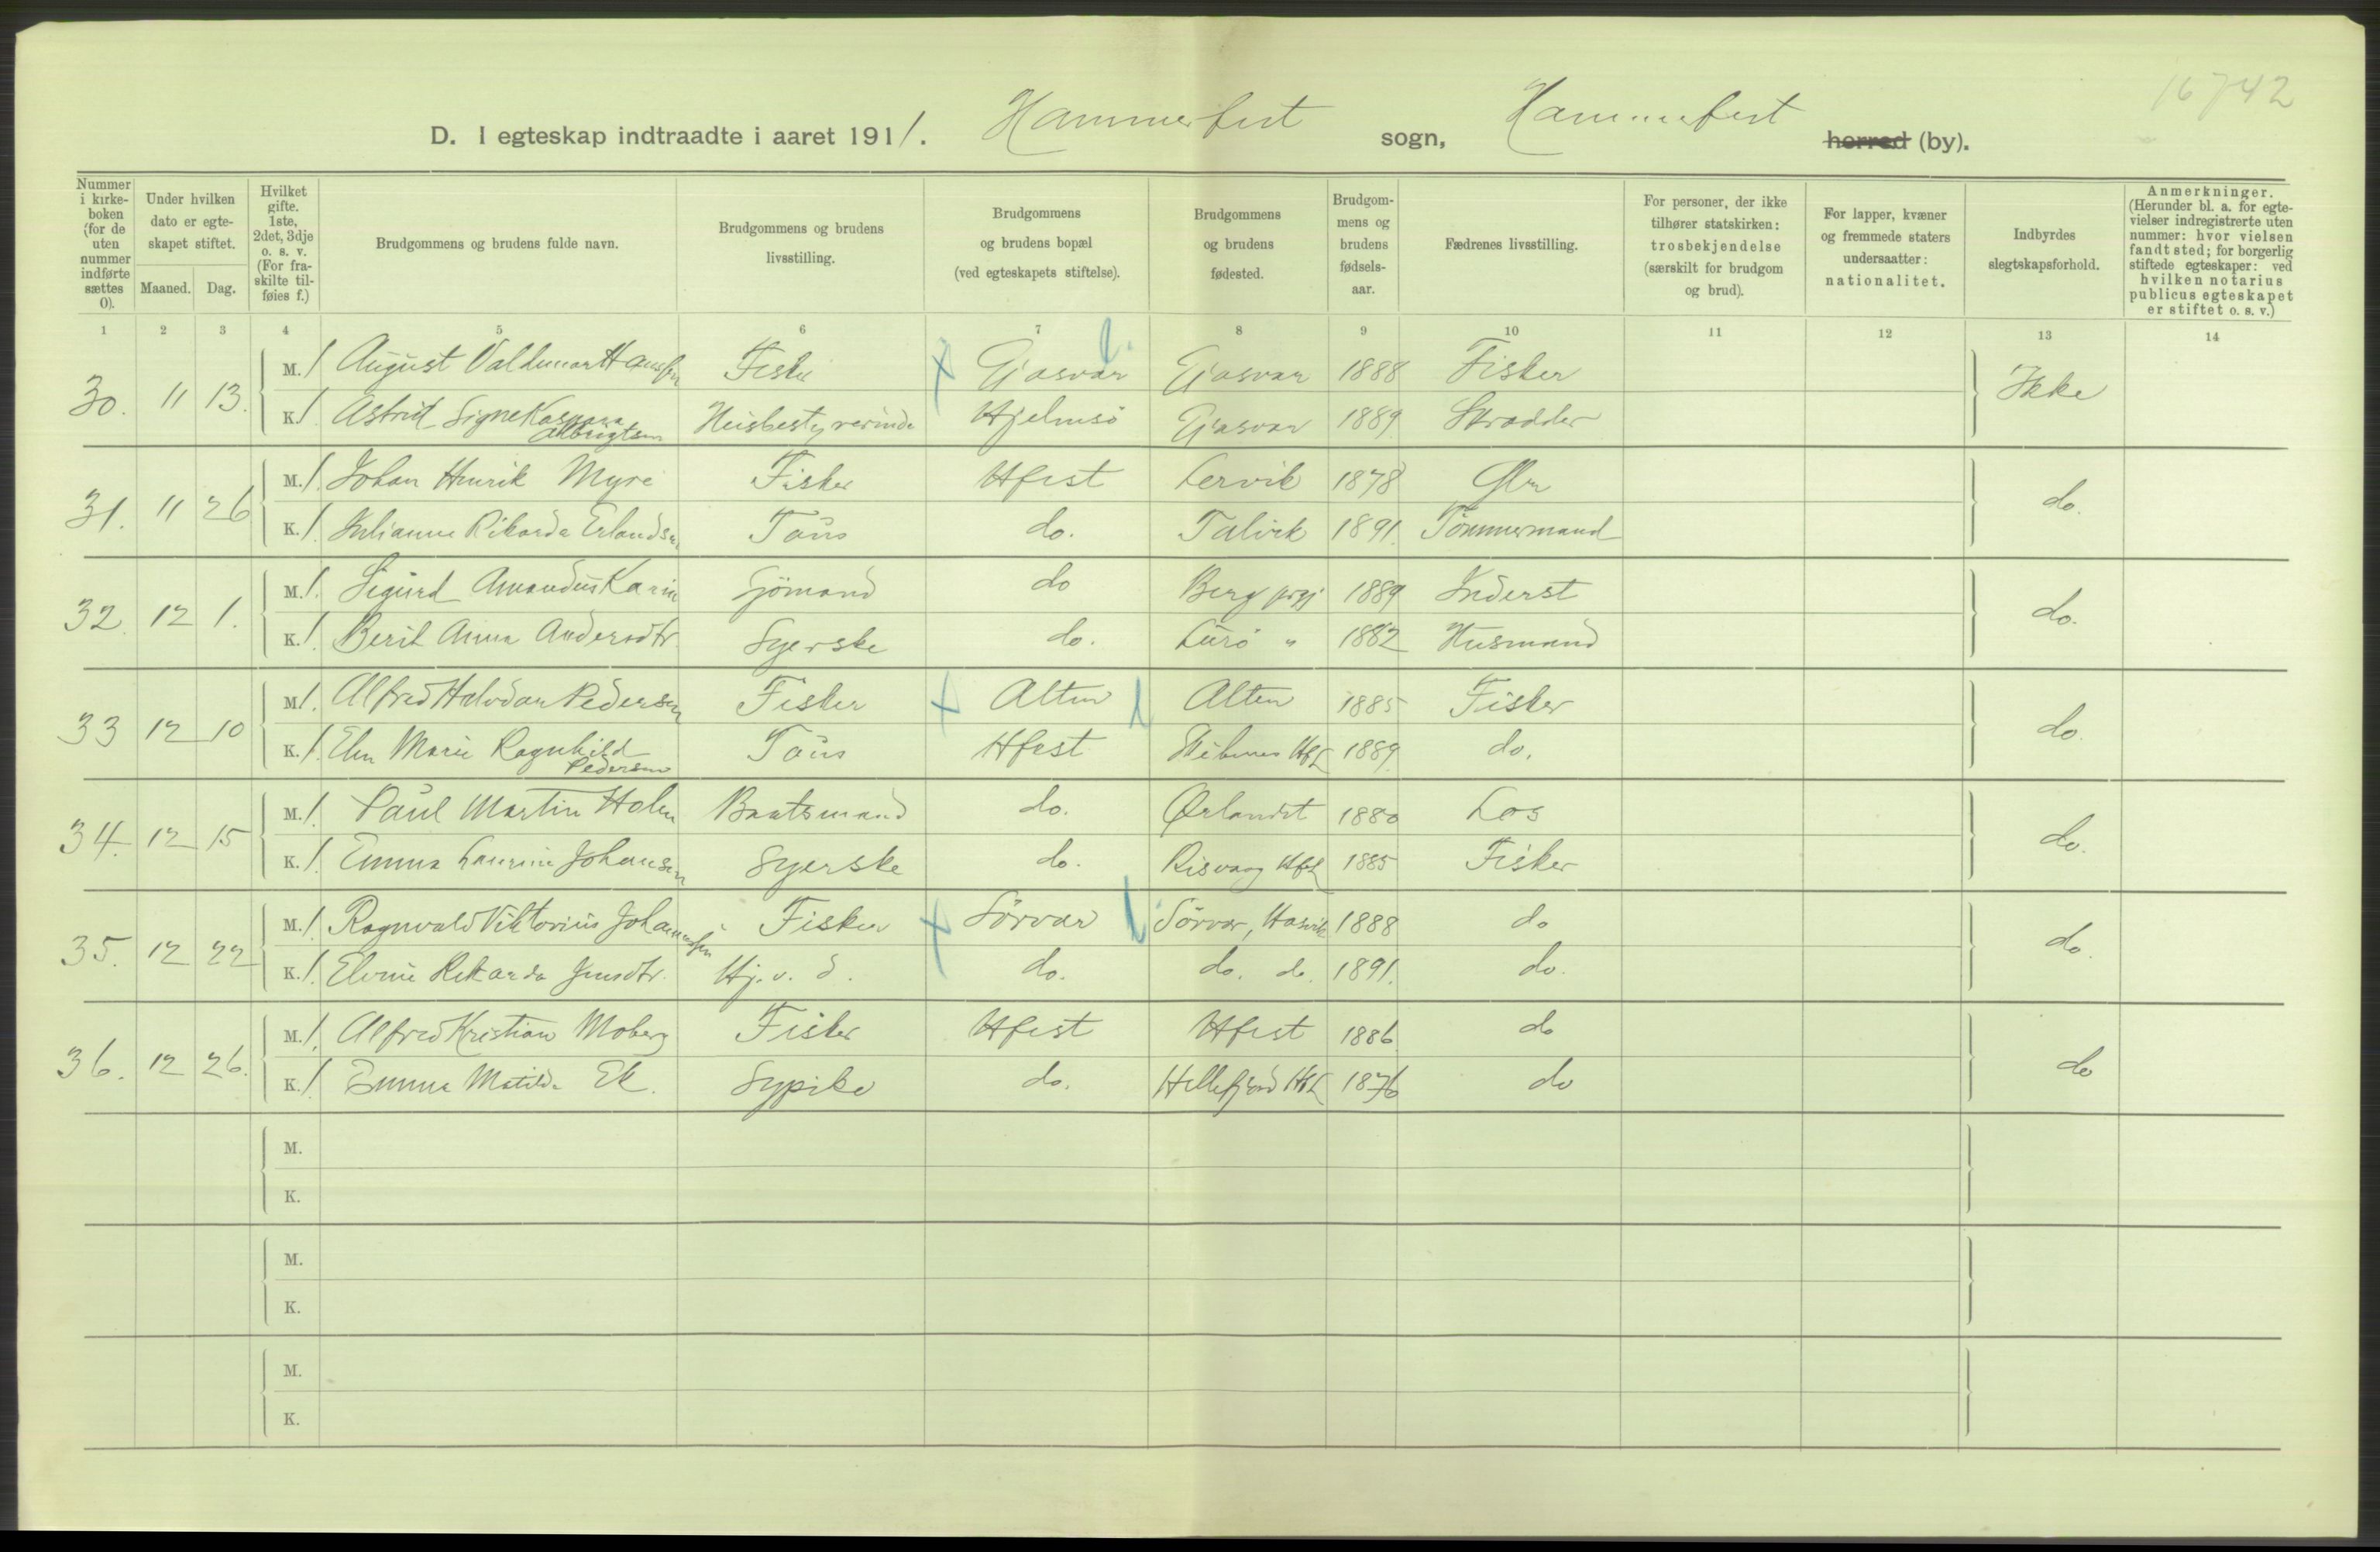 16742
D. I egteskap indtraadte i aaret 1911. Hammerfest sogn, Hammerfest herred (by).
Nummer i kirke-boken (for de uten nummer indførte sættes 0).
Under hvilken dato er egte-skapet stiftet.
Maaned. Dag.
Hvilket gifte. 1ste, 2det, 3dje o. s. v. (For fra-skilte til-føies f.)
Brudgommens og brudens fulde navn.
Brudgommens og brudens livsstilling.
Brudgommens og brudens bopæl (ved egteskapets stiftelse).
Brudgommens og brudens fødested.
Brudgom-mens og brudens fødsels-aar.
Fædrenes livsstilling.
For personer, der ikke tilhører statskirken: trosbekjendelse (særskilt for brudgom og brud).
For lapper, kvæner og fremmede staters undersaatter: nationalitet.
Indbyrdes slegtskapsforhold.
Anmerkninger. (Herunder bl. a. for egte-vielser indregistrerte uten nummer: hvor vielsen fandt sted; for borgerlig stiftede egteskaper: ved hvilken notarius publicus egteskapet er stiftet o. s. v.)
1 2 3 4 5 6 7 8 9 10 11 12 13 14
30. 11 13. M. 1 August Valdemar Hansen Fisker Gjesvær Gjesvær 1888 Fisker Ikke
K. 1 Astrid Signe Kaspara Albrigtsen Husbestyrerinde Hjelmsö Gjesvær 1889 Skrædder
31. 11 26 M. 1. Johan Henrik Myre Fisker Hfest Lervik 1878 do.
K. 1. Julianne Rikarda Erlandsen Taus do. Talvik 1891. Tömmermand
32. 12 1. M. 1. Sigurd Amandus Sjömand do Berg prgj 1889 Inderst do.
K. 1. Berit Anna Andersdtr. Syerske do. Lurö " 1882 Husmand
33 12 10 M. 1. Alfred Halvdan Pedersen Fisker Alten Alten 1885 Fisker do.
K. 1. Elen Marie Ragnhild Pedersen Taus Hfest Hfst 1889. do.
34. 12 15 M. 1. Paul Martin Holm Baatsmand do. Ørlandet 1880 Los do.
K. 1. Emma Laurine Johansen Syerske do. Risvaag Hfst 1885 Fisker
35. 12 22 M. 1. Ragnvald Viktorius Johannessen Fisker Sörvær Sörvær, Hasvik 1888 do do.
K. 1. Elvine Rikarda Jensdtr. Hj. v. d. do. do. do. 1891. do.
36. 12 26. M. 1. Alfred Kristian Moberg Fisker Hfest Hfest 1886 do do
K. 1. Emma Matilde Ek. Sypike do. Hellefjord Hfst 1876 do
M.
K.
M.
K.
M.
K.